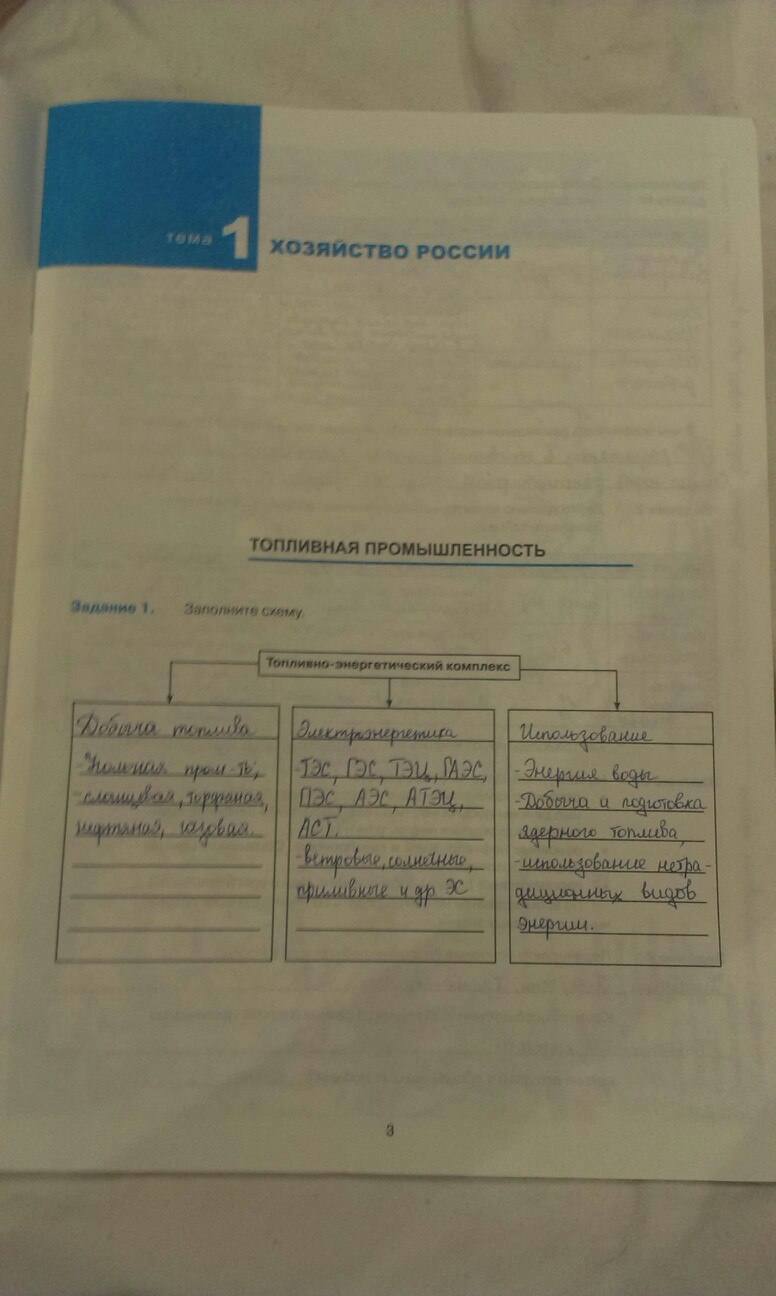 тема 1 ХОЗЯЙСТВО РОССИИ
ТОПЛИВНАЯ ПРОМЫШЛЕННОСТЬ
Задание 1. Заполните схему.
Топливно-энергетический комплекс
Добыча топлива
пром-ть,
-сланцевая, торфяная,
нефтяная, газовая.
Электроэнергетика
-ТЭС, ГЭС, ТЭЦ, ГАЭС,
ПЭС, АЭС, АТЭЦ,
АСТ.
-ветровые, солнечные,
приливные и др ЭС
Использование
-Энергия воды
-Добыча и подготовка
ядерного топлива,
-использование нетра-
диционных видов
энергии.
3